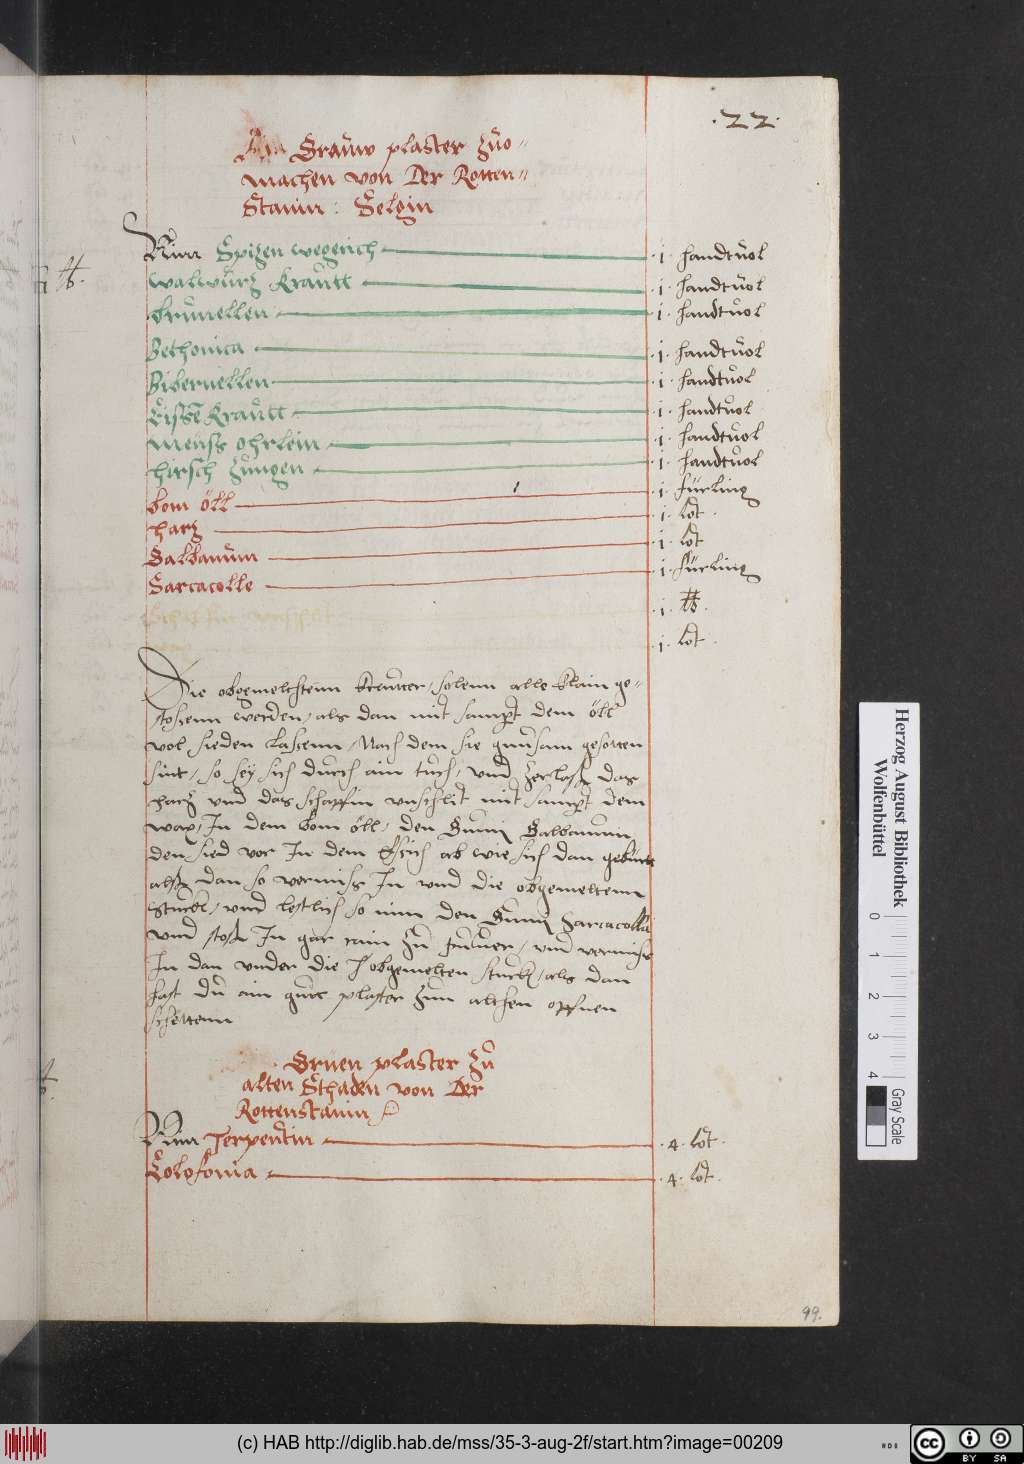 .22.
Ain Grauw plaster Zuo-
machen von Der Rotten-
Stanin : Selgin
Nim Spizen wegerich .1. handtuol
walwurz Krautt .1. handtuol
brunellen .1. handtuol
Bethonica .1. handtuol
Bibernellen .1. handtuol
Eissen Krautt .1. handtuol
Meuss ohrlein .1. handtuol
hirsch Zungen .1. handtuol
bom öll .1. fürling
harz .1. lot.
Galbanum .1. lot
Sarcacolle .1. fürling
vnschlit .1. ℔.
.1. lot.
Die obgemeltstenn Kreutter, solenn alle klain ge-
stossenn werden, als dan mit sampt dem öll
wol sieden lassenn, Nach dem sie gnusam gesotten
sint, so sey sich durch ain tuch, vnd zerlass das
harz vnd das schaffin vnschlit mit sampt dem
wax, In dem bom öll, den Gumi Galbanum
den sied vor In dem Essich ab wie sich dan gebürt
alss dan so vermiss In vnd die obgemeltenn
stuckh, vnd lestlich so nim den Gumi Sarcacolla
vnd stoss In gar rain zu puluer, vnd vermiss
In dan vnder die obgemelten stuckh, als dan
hast du ain guts plaster zum althen offnen
scheden
Gruen plaster Zu
alten Schaden von Der
Rottenstanin
Nim Terpentin .4. lot.
Colofonia .4. lot.
99.
Herzog August Bibliothek
Wolfenbüttel
0 1 2 3 4
Gray Scale
(c) HAB http://diglib.hab.de/mss/35-3-aug-2f/start.htm?image=00209
cc BY SA